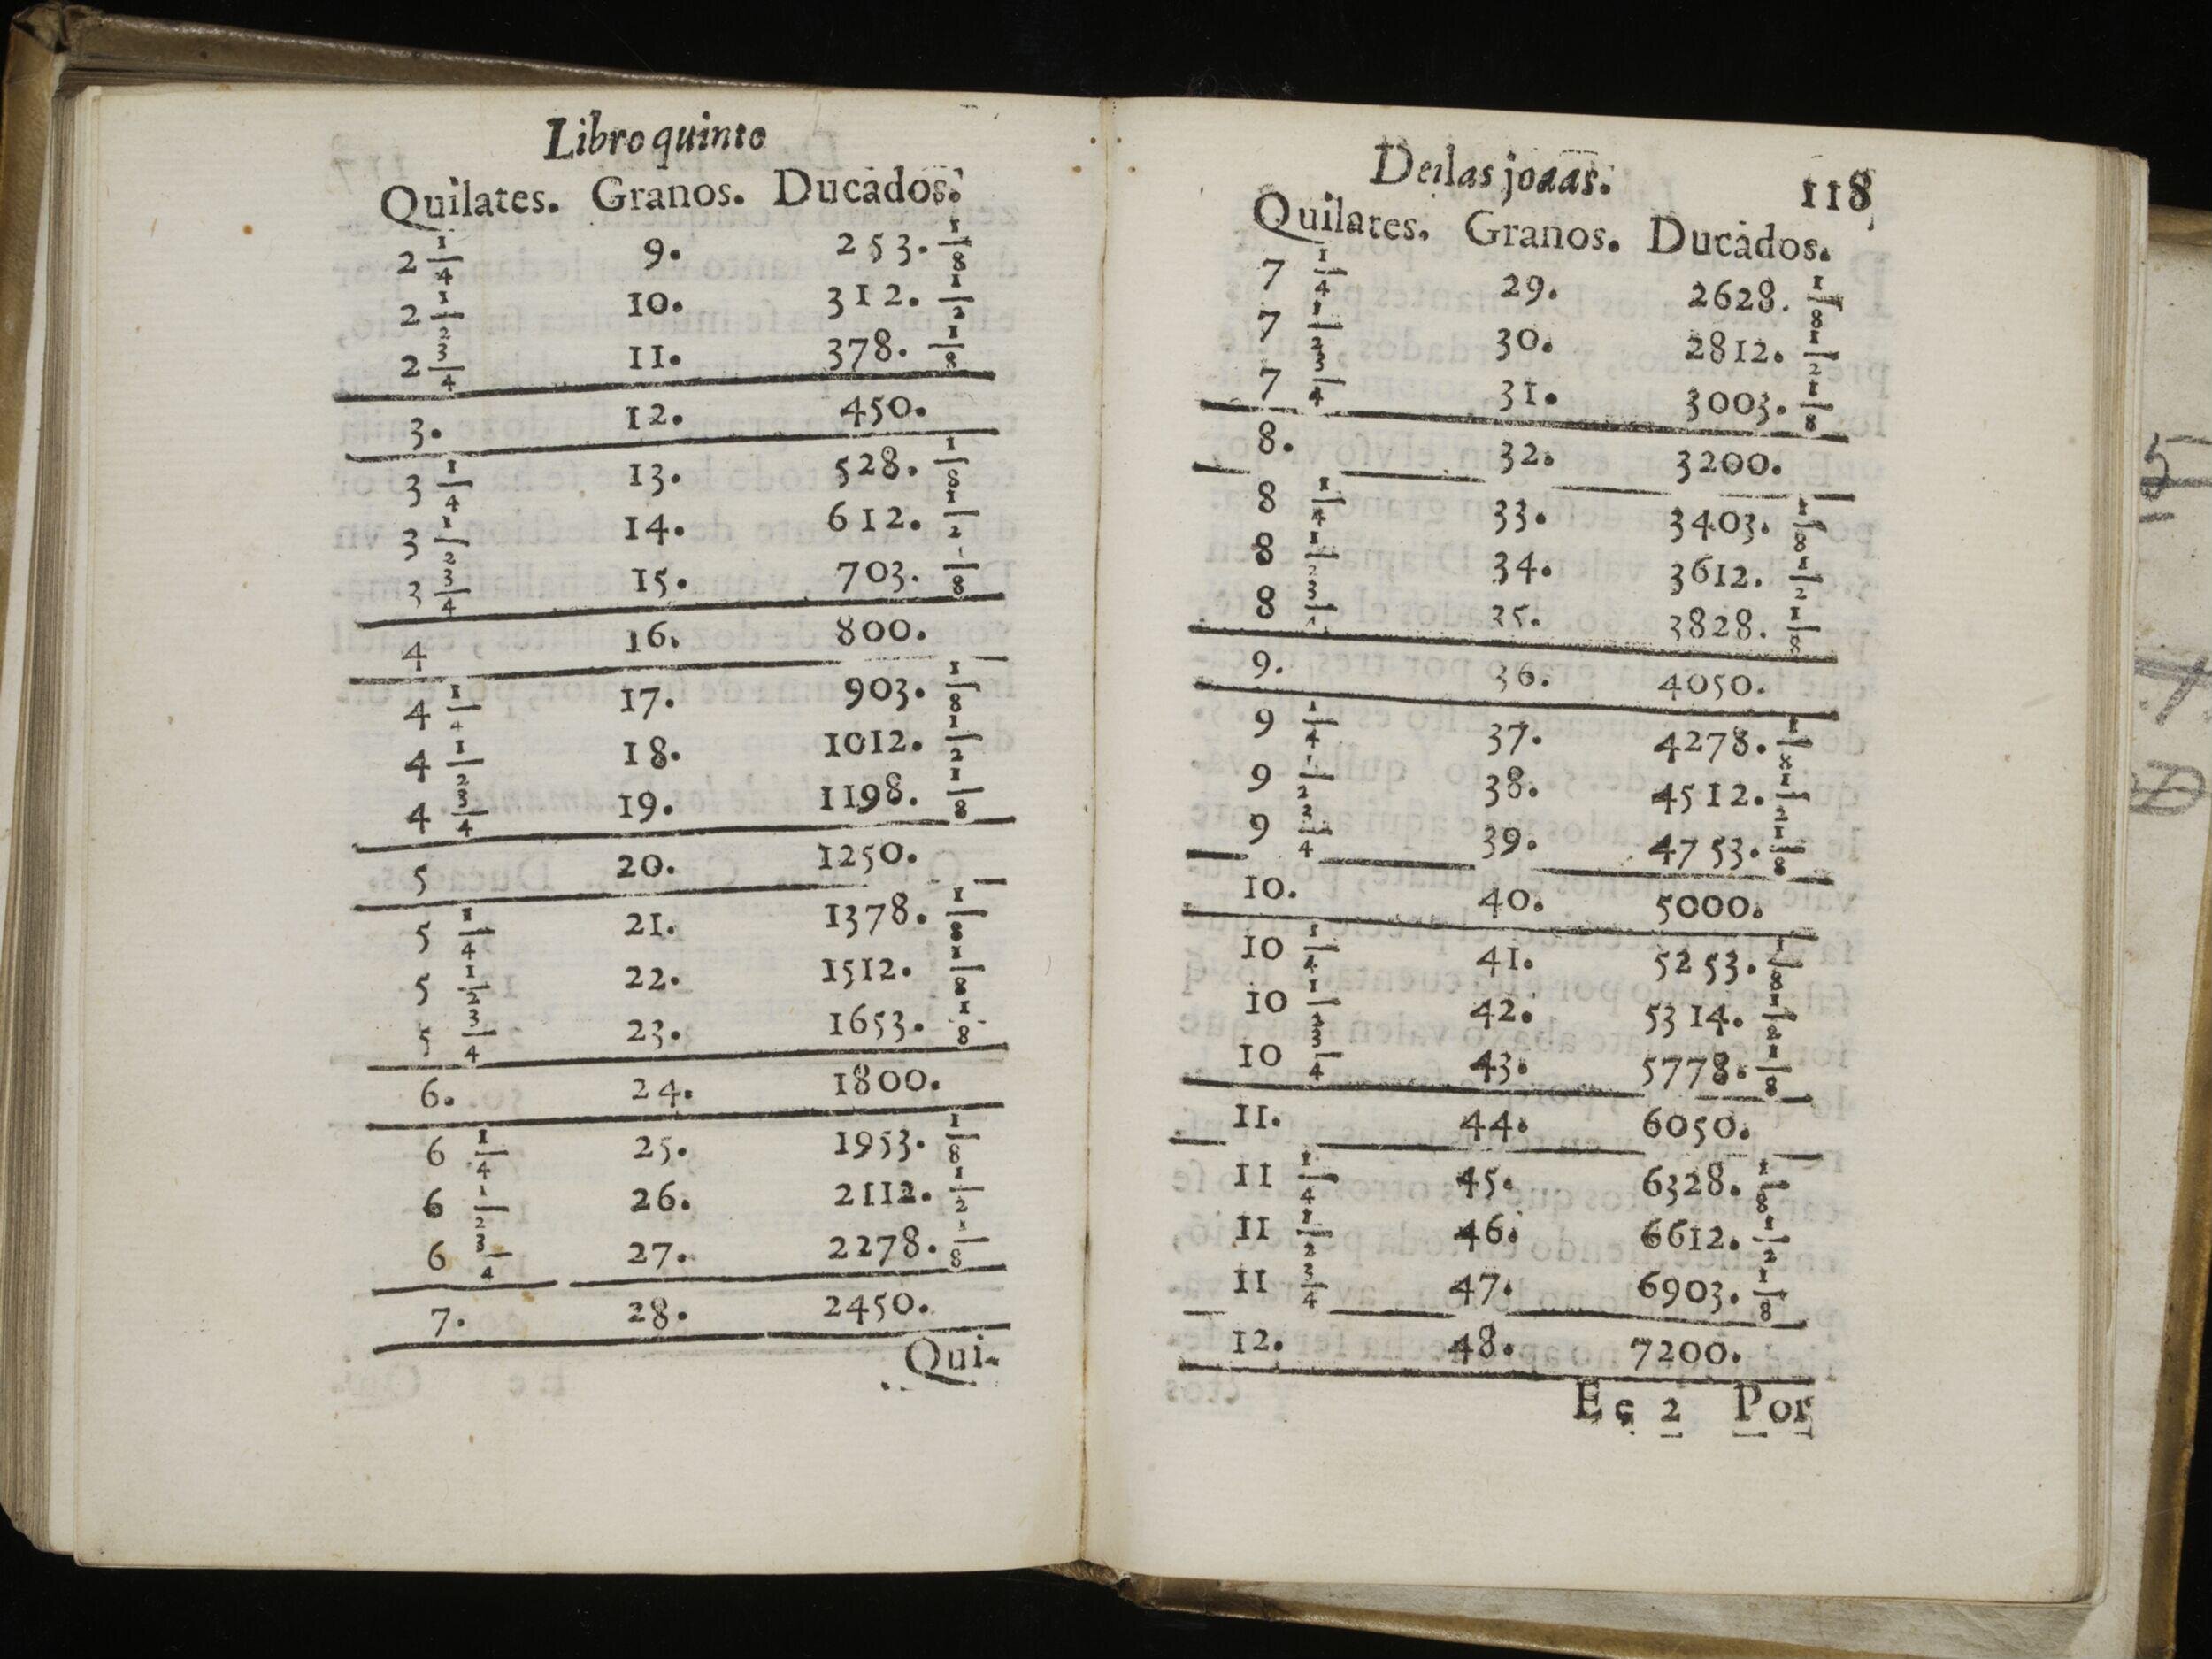 Libro quinto
Quilates. Granos. Ducados.
2 1/4 9. 253. 1/8
2 1/2 10. 312. 1/2
2 3/4 11. 378. 1/8
3. 12. 450.
3 1/4 13. 528. 1/8
3 1/2 14. 612. 1/2
3 3/4 15. 703. 1/8
4 16. 800.
4 1/4 17. 903. 1/8
4 1/2 18. 1012. 1/2
4 3/4 19. 1198. 1/8
5 20. 1250.
5 1/4 21. 1378. 1/8
5 1/2 22. 1512. 1/8
5 3/4 23. 1653. 1/8
6. 24. 1800.
6 1/4 25. 1953. 1/8
6 1/2 26. 2112. 1/2
6 3/4 27. 2278. 1/8
7. 28. 2450.
Qui-
De las joaas. 118
Quilates. Granos. Ducados.
7 1/4 29. 2628. 1/8
7 1/2 30. 2812. 1/2
7 3/4 31. 3003. 1/8
8. 32. 3200.
8 1/4 33. 3403. 1/8
8 1/2 34. 3612. 1/2
8 3/4 35. 3828. 1/8
9. 36. 4050.
9 1/4 37. 4278. 1/8
9 1/2 38. 4512. 1/2
9 3/4 39. 4753. 1/8
10. 40. 5000.
10 1/4 41. 5253. 1/8
10 1/2 42. 5314. 1/2
10 3/4 43. 5778. 1/8
11. 44. 6050.
11 1/4 45. 6328. 1/8
11 1/2 46. 6612. 1/2
11 3/4 47. 6903. 1/8
12. 48. 7200.
Ee 2 Por